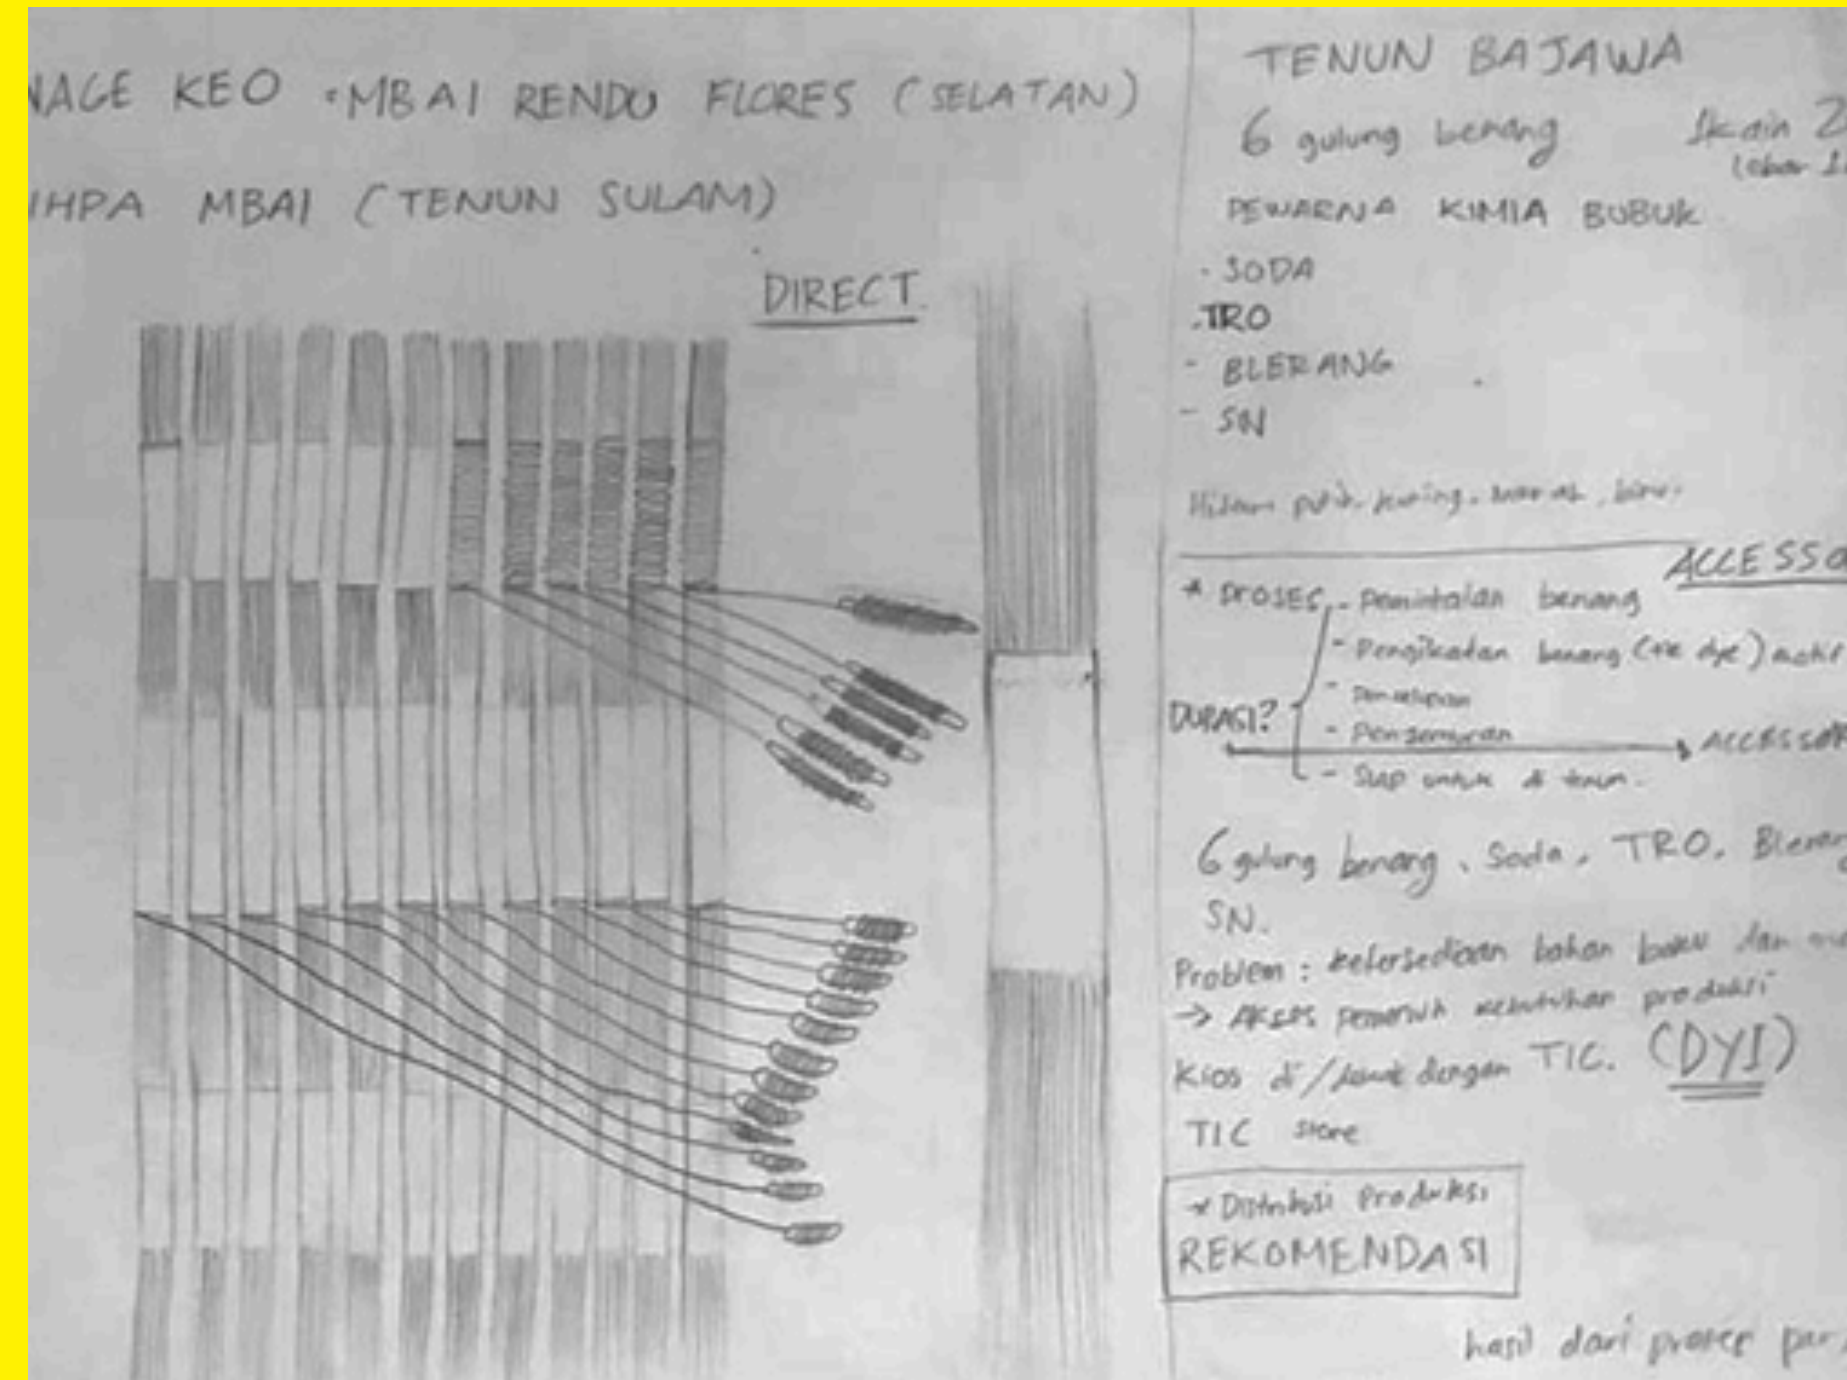 NAGE KEO • MBAI RENDU FLORES (SELATAN)
IHPA MBAI (TENUN SULAM)
DIRECT
TENUN BAJAWA
6 gulung benang
1kain
PEWARNA KIMIA BUBUK
- SODA
- TRO
- BLERANG
- SN
Hitam putih, kuning, merah, biru.
ACCESSO
* PROSES - Pemintalan benang
- Pengikatan benang (tie dye) motif
DURASI?
- Penjemuran
ACCESSOR
- Siap untuk di tenun.
6 gulung benang, Soda, TRO, Blerang
SN.
Problem : ketersediaan bahan baku dan
→ AKSES kebutuhan produksi
Kios di / dengan TIC. (DYI)
TIC store
* Distribusi Produksi
REKOMENDASI
hasil dari proses par